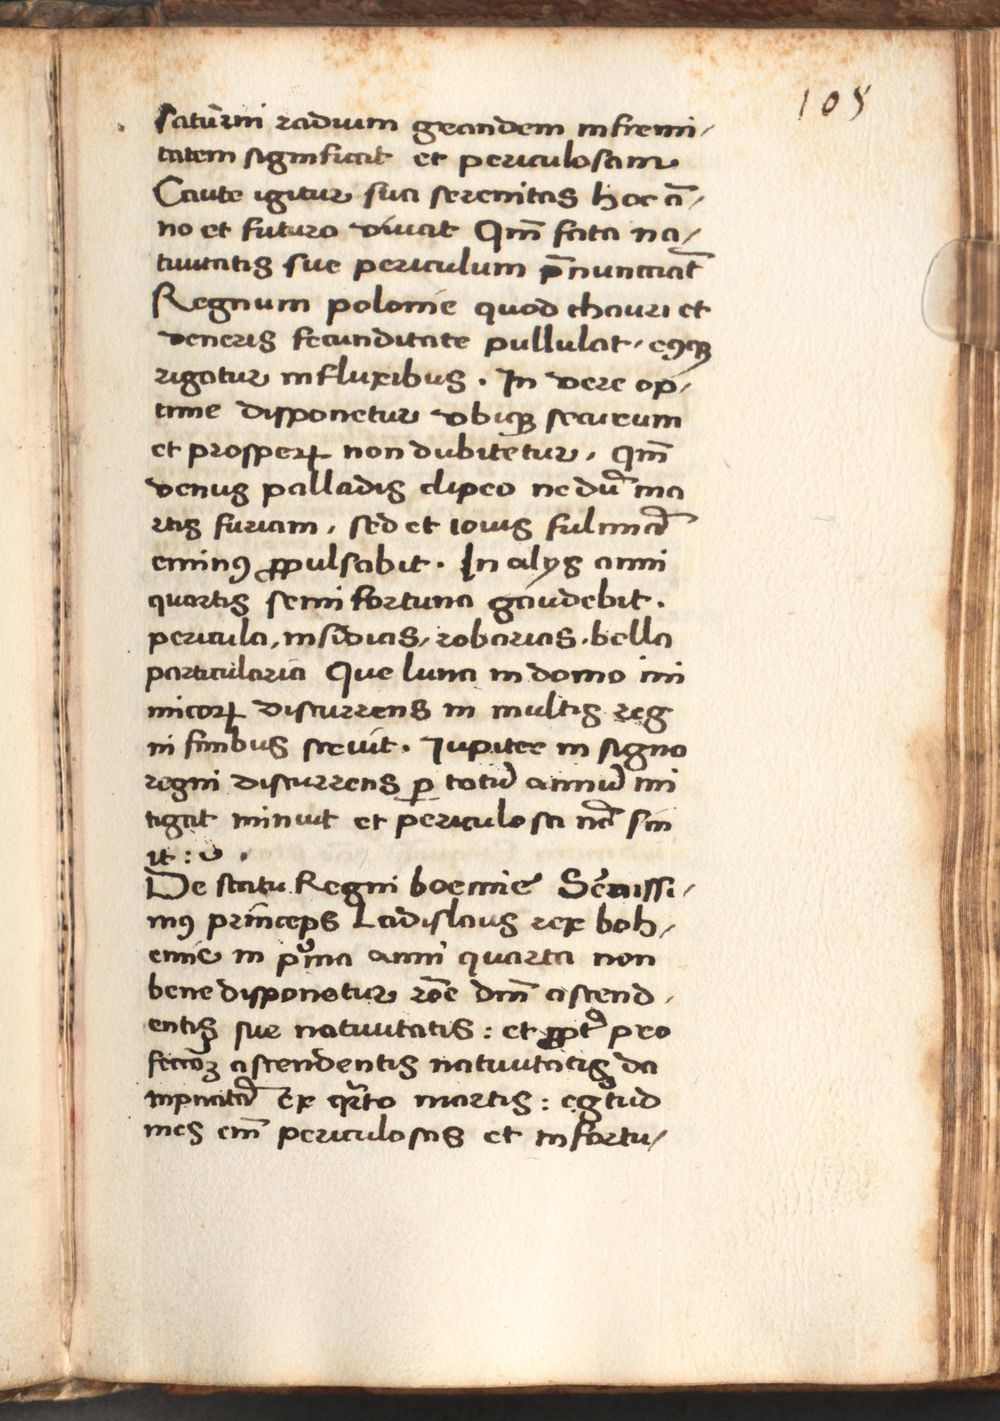 105
saturni radium grandem infremi/
tatem significat et periculosam
Caute igitur sua serenitas hoc ā/
no et futuro viuat Qm̄ fata na/
tiuitatis sue periculum p̄nunciāt
Regnum polonie quod thauri et
veneris fecunditate pullulat, eꝯqꝫ
rigatur influxibus . In vere op/
time disponetur vbiqꝫ securum
et prosperꝝ non dubitetur, qm̄
venus palladis clipeo nedū ma
rtis furiam, sed et iouis fulmīa
eminꝯ ꝓpulsabit . In alijs anni
quartis semi fortuna gaudebit .
pericula, insidias, robarias, bella
particularia Que luna in domo ini
micorꝝ discurrens in multis reg
ni finibus sceuit . Iupiter in signo
regni discurrens ꝑ totū annū mi
tigat minuit et periculosa nō sin
it :
De statu Regni boemie Sērnissi/
mꝯ princeps Ladislaus rex boh/
emie in pͥma anni quarta non
bene disponetur rōe dm̄ ascend/
entis sue natiuitatis : et ꝓpt̄ pro
fectōꝫ ascendentis natiuitatis da
mpnatā Ex qͣrto martis : egͥtud
ines em̄ periculosas et infortu/